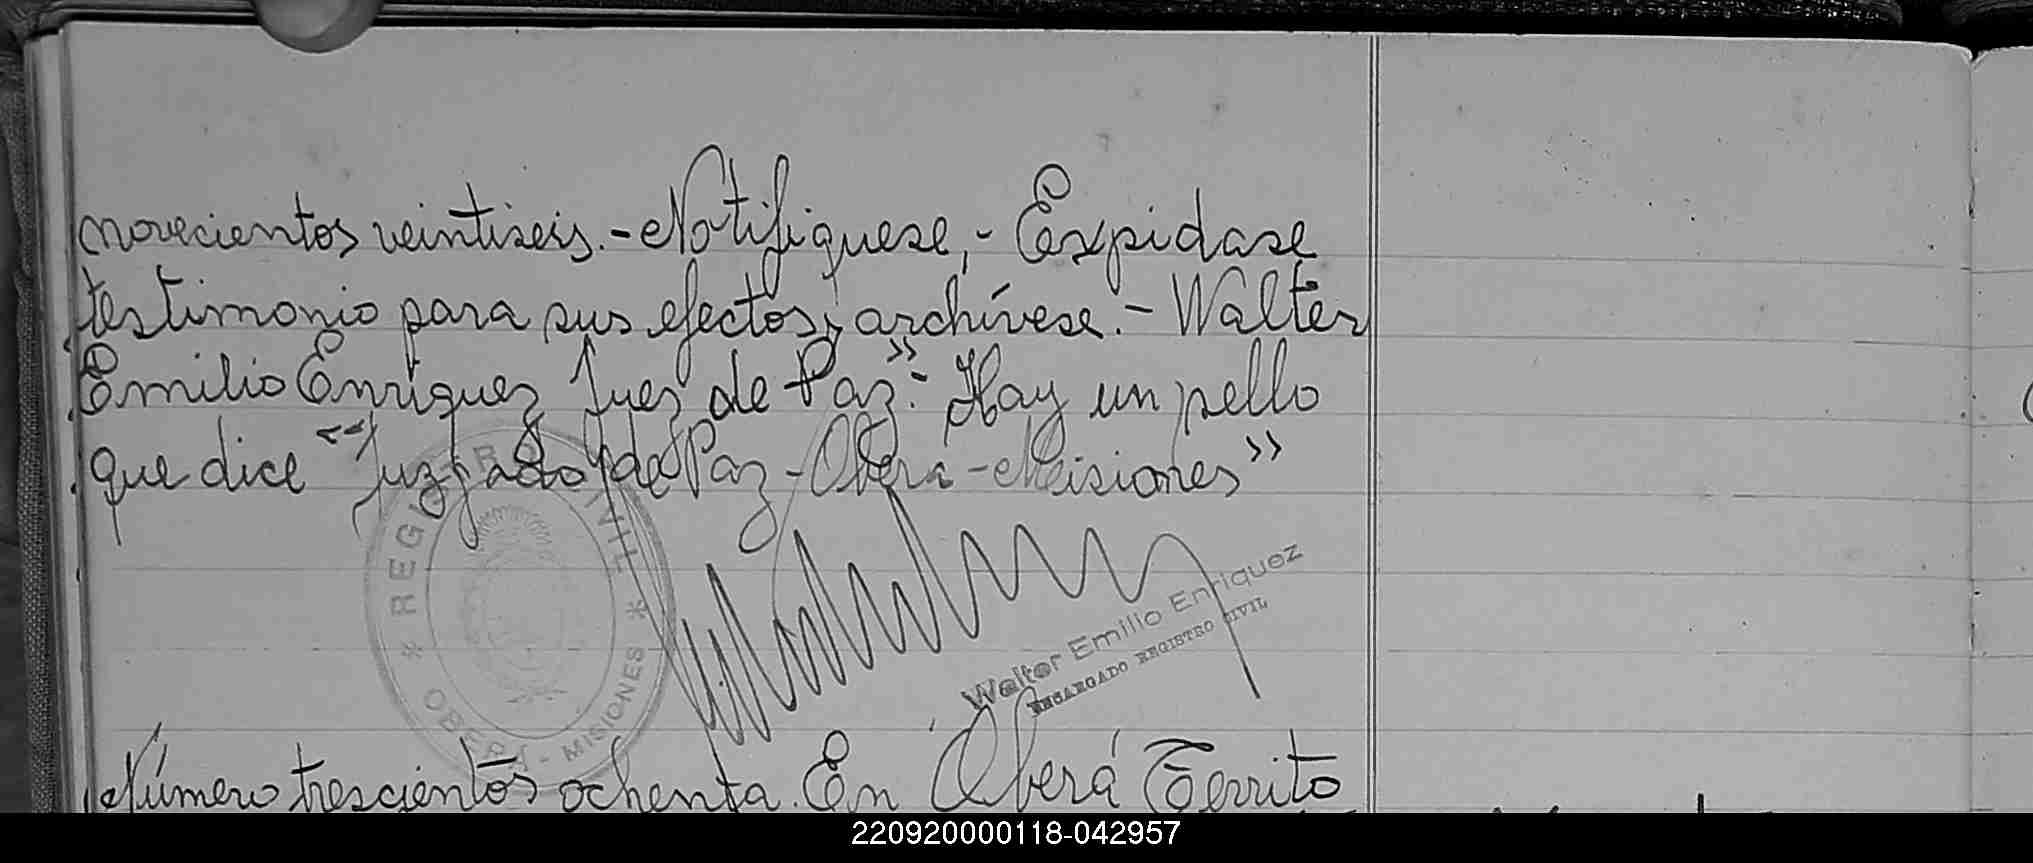 novecientos veintiseis.- Notifiquese,- Expidase
testimonio para sus efectos y archívese.- Walter
Emilio Enriquez Juez de Paz". Hay un sello
que dice "Juzgado de Paz - Oberá - Misiones"
* REGISTRO CIVIL *
OBERÁ - MISIONES
Walter Emilio Enriquez
ENCARGADO REGISTRO CIVIL
Número trescientos ochenta. En Oberá Territo
220920000118-042957